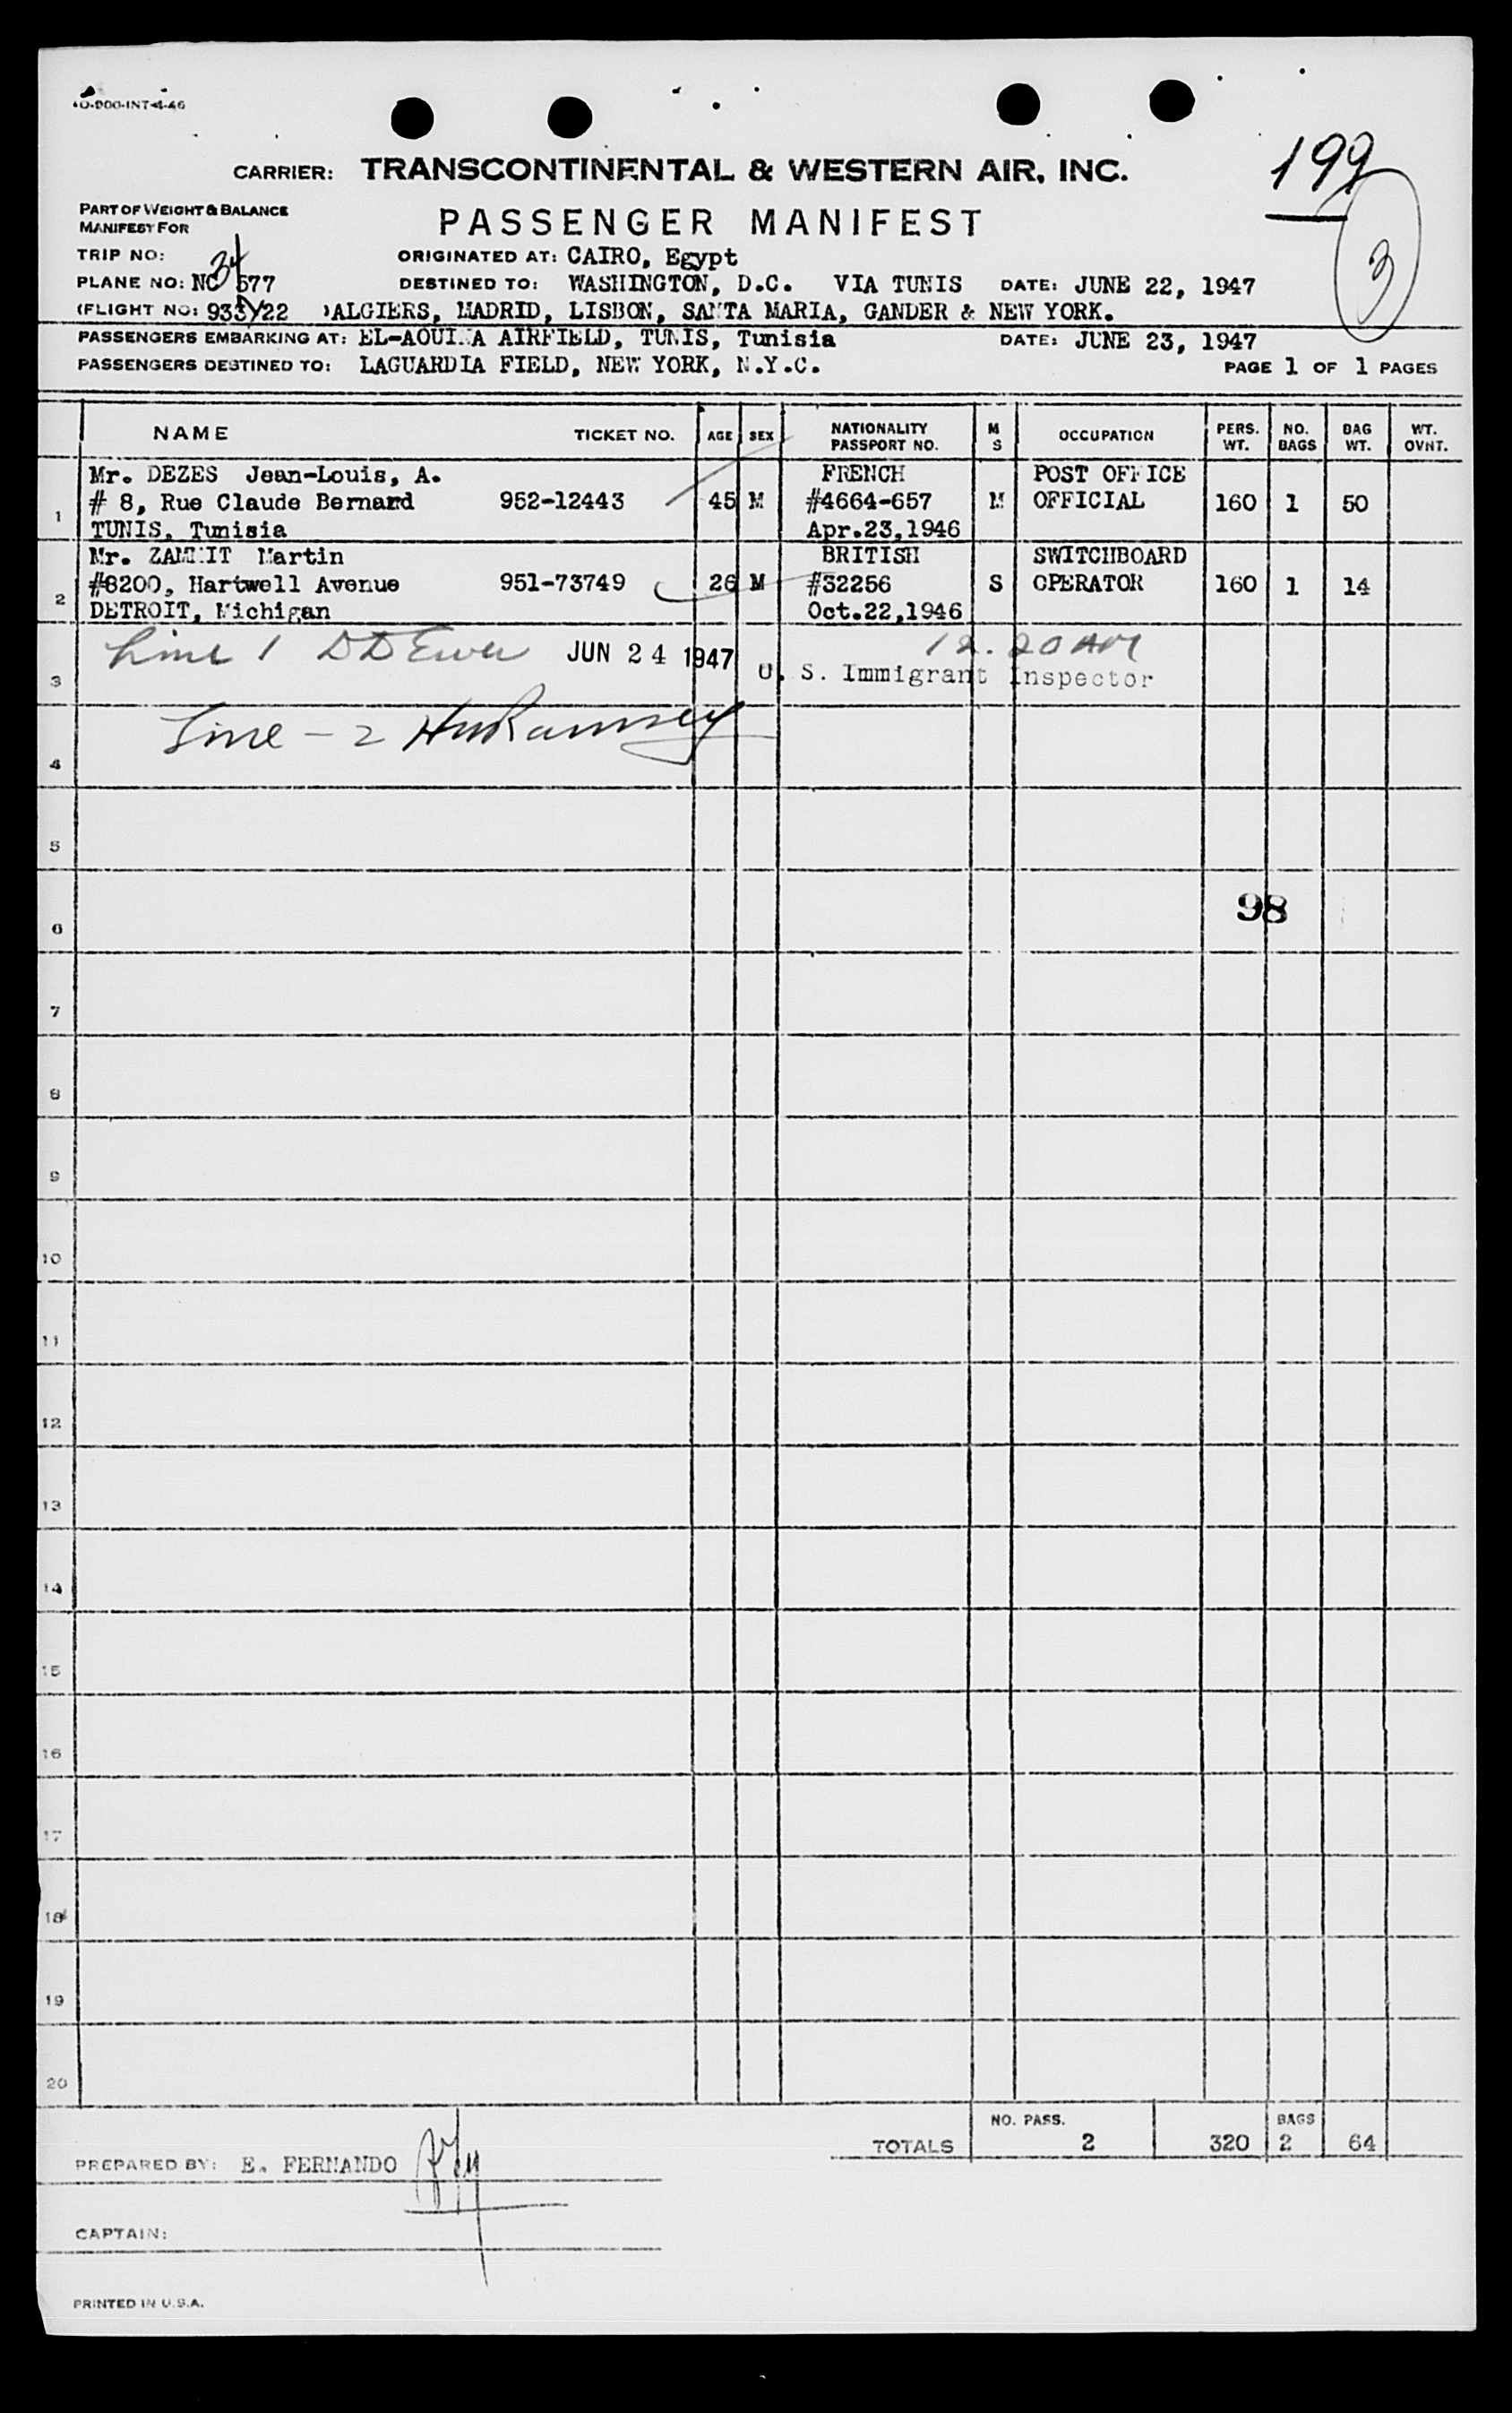 CARRIER: TRANSCONTINENTAL & WESTERN AIR, INC.
199
3
PART OF WEIGHT & BALANCE
MANIFEST FOR
PASSENGER MANIFEST
TRIP NO:
ORIGINATED AT: CAIRO, Egypt
PLANE NO: NC 34577
DESTINED TO: WASHINGTON, D.C. VIA TUNIS DATE: JUNE 22, 1947
(FLIGHT NO: 933/22 )ALGIERS, MADRID, LISBON, SANTA MARIA, GANDER & NEW YORK.
PASSENGERS EMBARKING AT: EL-AOUINA AIRFIELD, TUNIS, Tunisia DATE: JUNE 23, 1947
PASSENGERS DESTINED TO: LAGUARDIA FIELD, NEW YORK, N.Y.C. PAGE 1 OF 1 PAGES
NAME TICKET NO. AGE SEX NATIONALITY PASSPORT NO. M S OCCUPATION PERS. WT. NO. BAGS BAG WT. WT. OVNT.
Mr. DEZES Jean-Louis, A. FRENCH POST OFFICE
1 # 8, Rue Claude Bernard 952-12443 45 M #4664-657 M OFFICIAL 160 1 50
TUNIS, Tunisia Apr.23,1946
Mr. ZAMMIT Martin BRITISH SWITCHBOARD
2 #8200, Hartwell Avenue 951-73749 26 M #32256 S OPERATOR 160 1 14
DETROIT, Michigan Oct.22,1946
Line 1 JUN 24 1947 12.20 AM
3 U. S. Immigrant Inspector
Line - 2 Ramsey
4
5
6 98
7
8
9
10
11
12
13
14
15
16
17
18
19
20
NO. PASS. BAGS
TOTALS 2 320 2 64
PREPARED BY: E. FERNANDO
CAPTAIN:
PRINTED IN U.S.A.